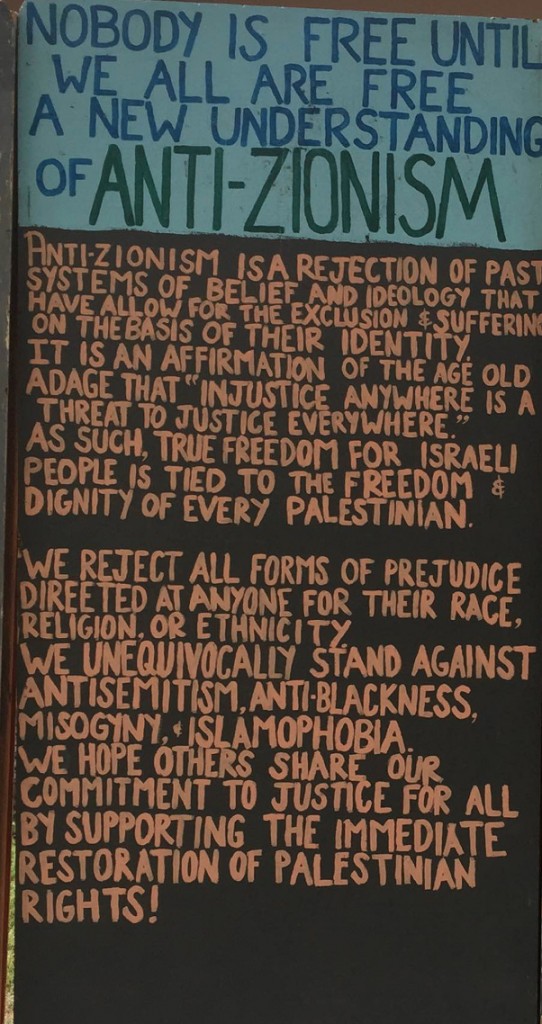 NOBODY IS FREE UNTIL
WE ALL ARE FREE
A NEW UNDERSTANDING
OF ANTI-ZIONISM
ANTI-ZIONISM IS A REJECTION OF PAST
SYSTEMS OF BELIEF AND IDEOLOGY THAT
HAVE ALLOW FOR THE EXCLUSION & SUFFERING
ON THE BASIS OF THEIR IDENTITY.
IT IS AN AFFIRMATION OF THE AGE OLD
ADAGE THAT "INJUSTICE ANYWHERE IS A
THREAT TO JUSTICE EVERYWHERE."
AS SUCH, TRUE FREEDOM FOR ISRAELI
PEOPLE IS TIED TO THE FREEDOM &
DIGNITY OF EVERY PALESTINIAN.
WE REJECT ALL FORMS OF PREJUDICE
DIREETED AT ANYONE FOR THEIR RACE,
RELIGION, OR ETHNICITY.
WE UNEQUIVOCALLY STAND AGAINST
ANTISEMITISM, ANTI-BLACKNESS,
MISOGYNY, & ISLAMOPHOBIA.
WE HOPE OTHERS SHARE OUR
COMMITMENT TO JUSTICE FOR ALL
BY SUPPORTING THE IMMEDIATE
RESTORATION OF PALESTINIAN
RIGHTS!